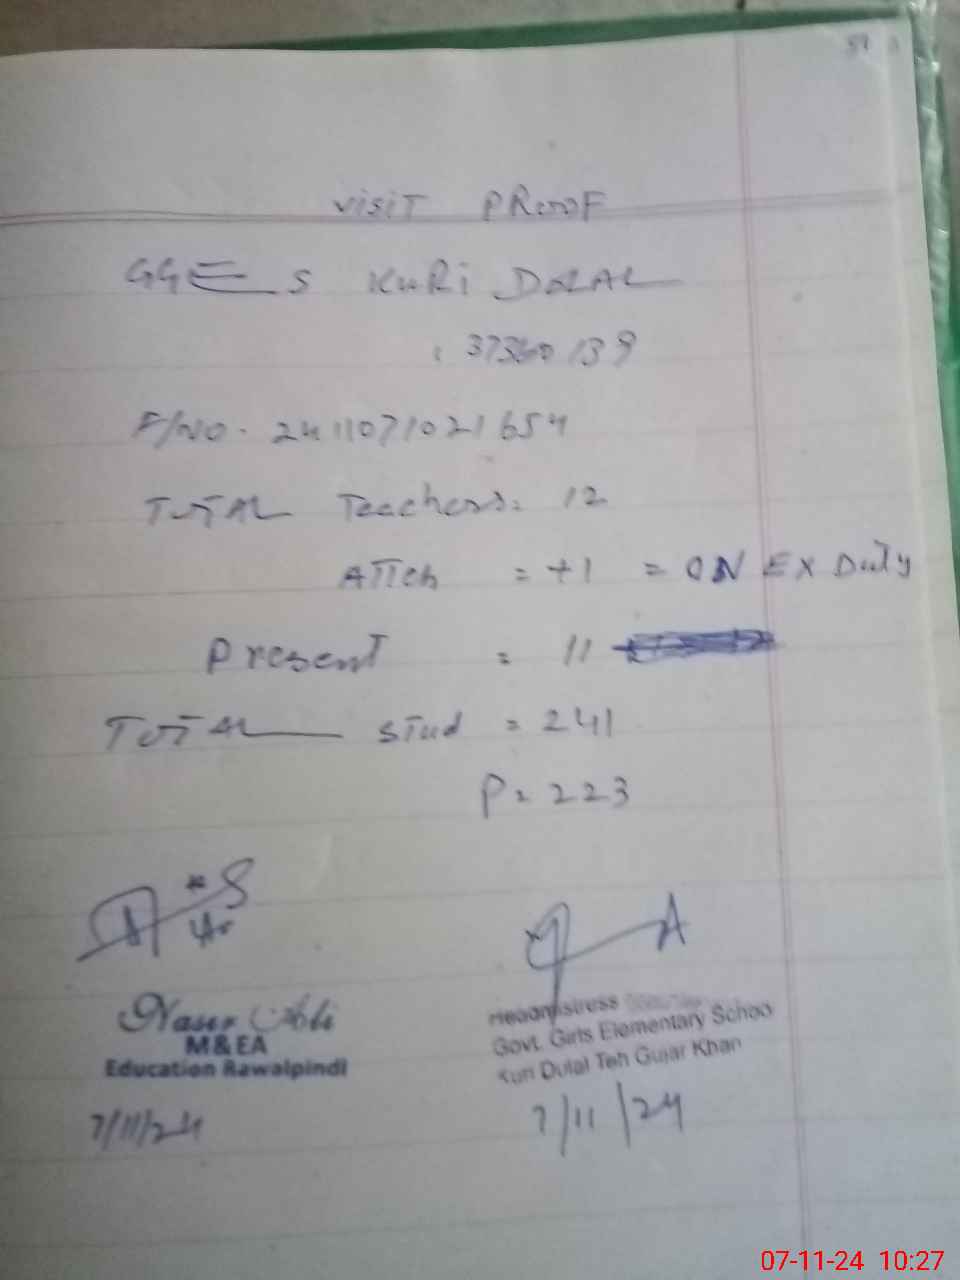 51
VISIT PROOF
GGES KURI DOLAL
: 37360139
F/NO. 2411071021654
TOTAL Teachers = 12
ATTch = +1 = ON EX Duty
Present = 11
TOTAL Stud = 241
P = 223
Naser Ali
M&EA
Education Rawalpindi
7/11/24
Headmistress
Govt. Girls Elementary School
Kuri Dulal Teh Gujar Khan
7/11/24
07-11-24 10:27